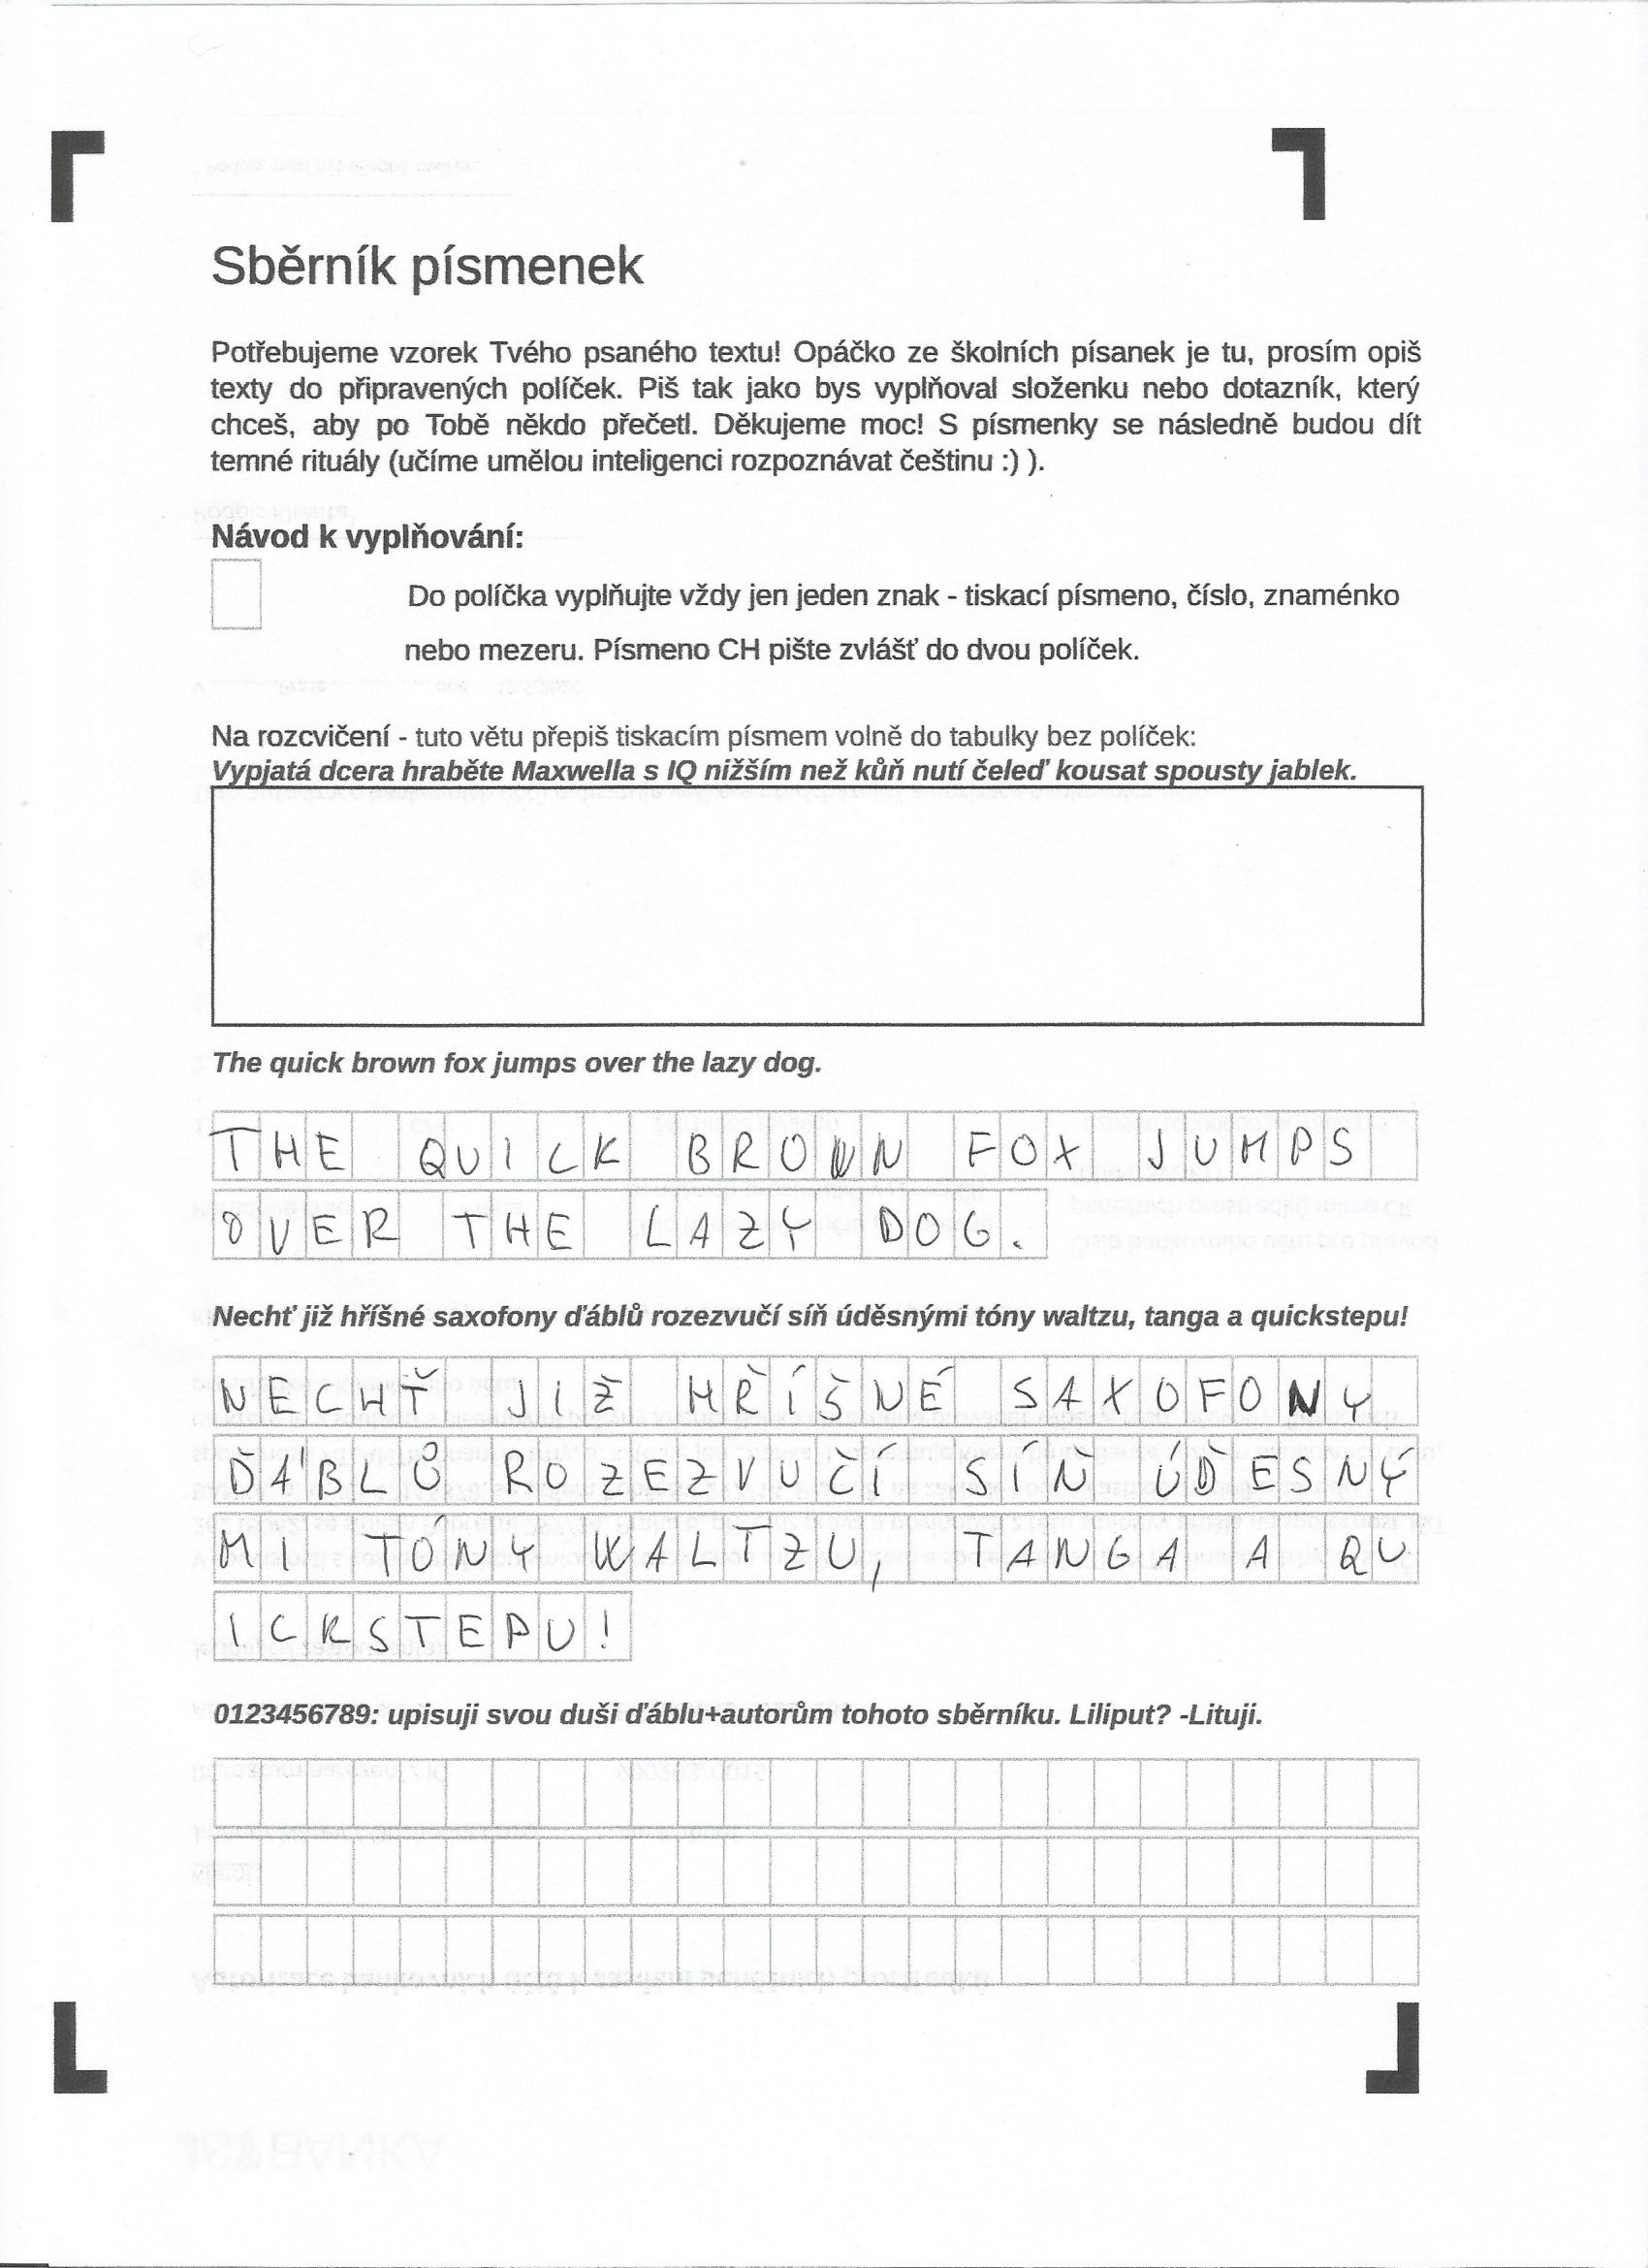 Sběrník písmenek
Potřebujeme vzorek Tvého psaného textu! Opáčko ze školních písanek je tu, prosím opiš
texty do připravených políček. Piš tak jako bys vyplňoval složenku nebo dotazník, který
chceš, aby po Tobě někdo přečetl. Děkujeme moc! S písmenky se následně budou dít
temné rituály (učíme umělou inteligenci rozpoznávat češtinu :) ).
Návod k vyplňování:
Do políčka vyplňujte vždy jen jeden znak - tiskací písmeno, číslo, znaménko
nebo mezeru. Písmeno CH pište zvlášť do dvou políček.
Na rozcvičení - tuto větu přepiš tiskacím písmem volně do tabulky bez políček:
Vypjatá dcera hraběte Maxwella s IQ nižším než kůň nutí čeleď kousat spousty jablek.
The quick brown fox jumps over the lazy dog.
THE QUICK BROWN FOX JUMPS
OVER THE LAZY DOG.
Nechť již hříšné saxofony ďáblů rozezvučí síň úděsnými tóny waltzu, tanga a quickstepu!
NECHŤ JIŽ HŘÍŠNÉ SAXOFONY
ĎÁBLŮ ROZEZVUČÍ SÍŇ ÚĎESNÝ
MI TÓNY WALTZU, TANGA A QU
ICKSTEPU!
0123456789: upisuji svou duši ďáblu+autorům tohoto sběrníku. Liliput? -Lituji.